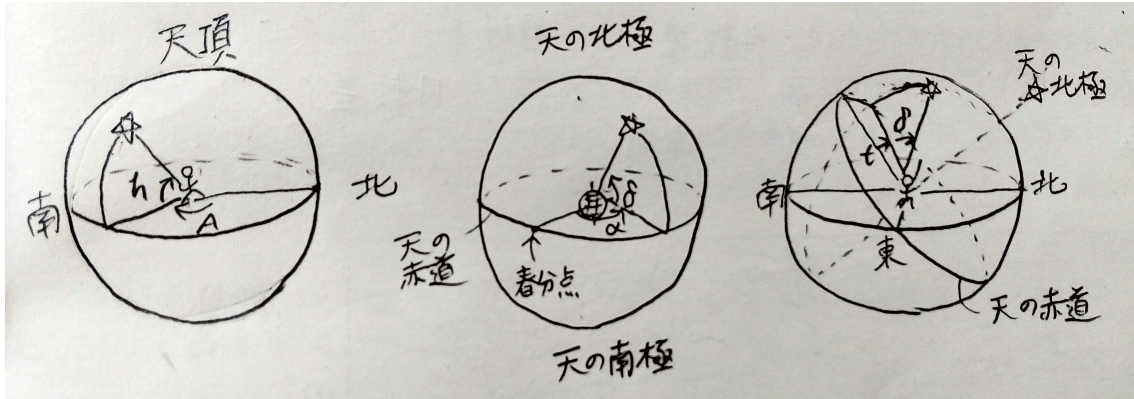 天頂
南
h
A
北
天の北極
δ
α
天の
赤道
春分点
天の南極
天の
北極
δ
t
南
北
東
天の赤道